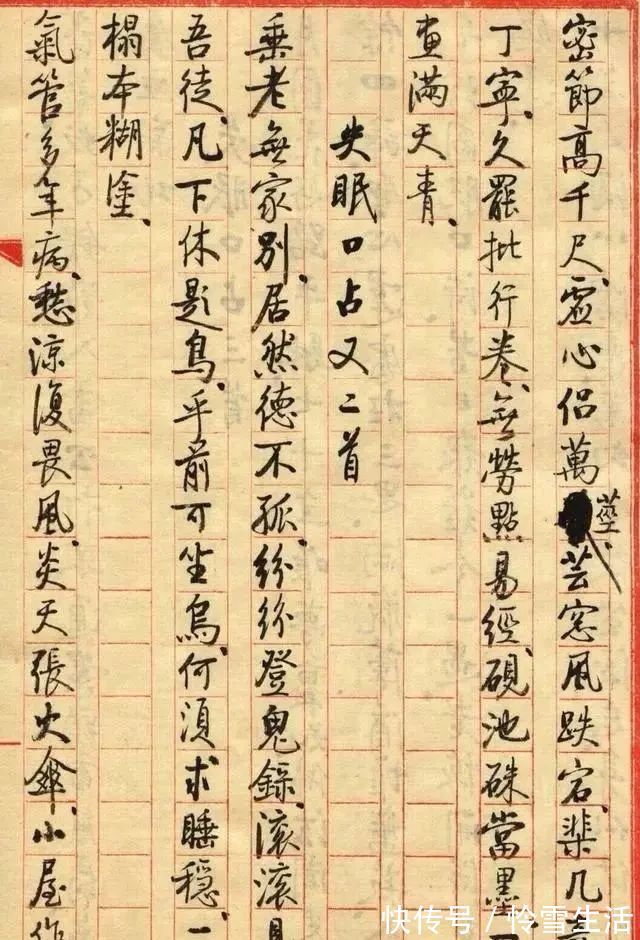 密節高千尺、虛心侶萬莖、芸窓風跌宕、棐几
丁寧、久罷批行卷、無勞點易經、硯池硃當墨、
畫滿天青、
失眠口占又二首
垂老無家別、居然德不孤、紛紛登鬼錄、滾滾
吾徒、凡下休題鳥、乎前可坐烏、何須求睡穩、一
榻本糊塗、
氣管多年病、愁涼復畏風、炎天張火傘、小屋作
快传号/怜雪生活